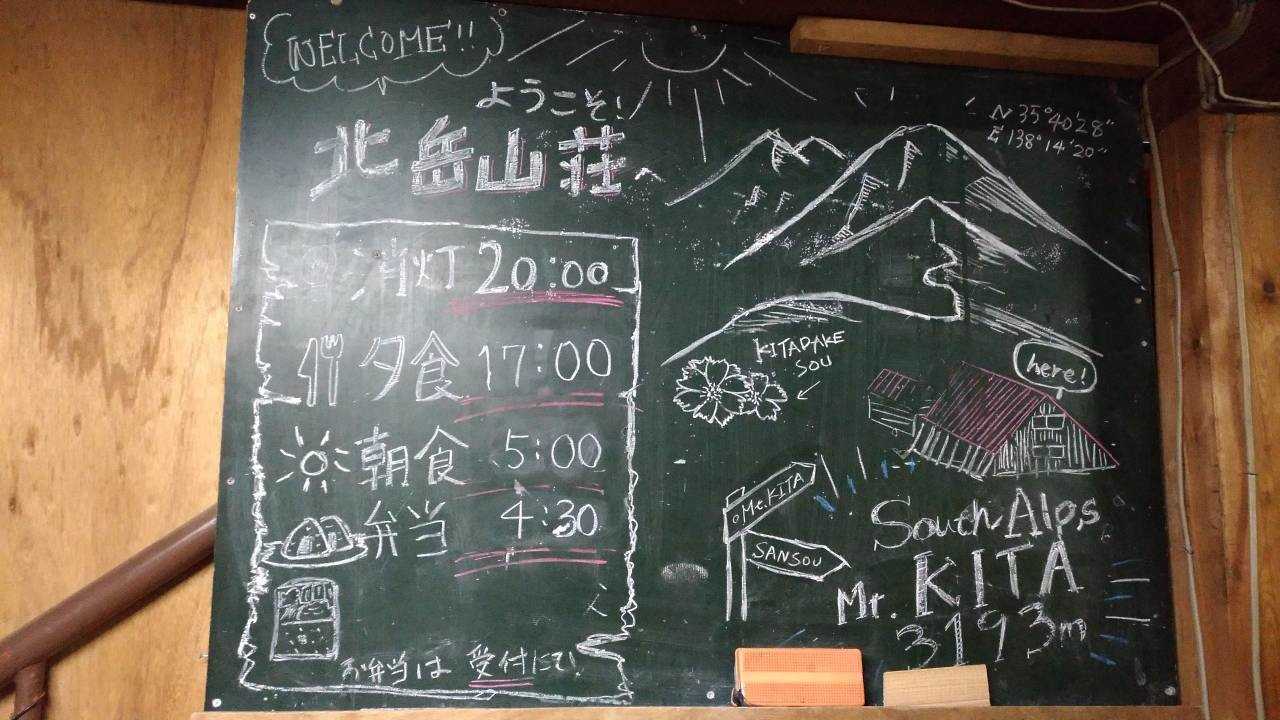 WELCOME!!
ようこそ!
北岳山荘へ
消灯 20:00
夕食 17:00
朝食 5:00
弁当 4:30
お弁当は 受付にて!
N 35°40'28"
E 138°14'20"
KITADAKE
SOU
here!
Mt.KITA
SANSOU
South Alps
Mt. KITA
3193m